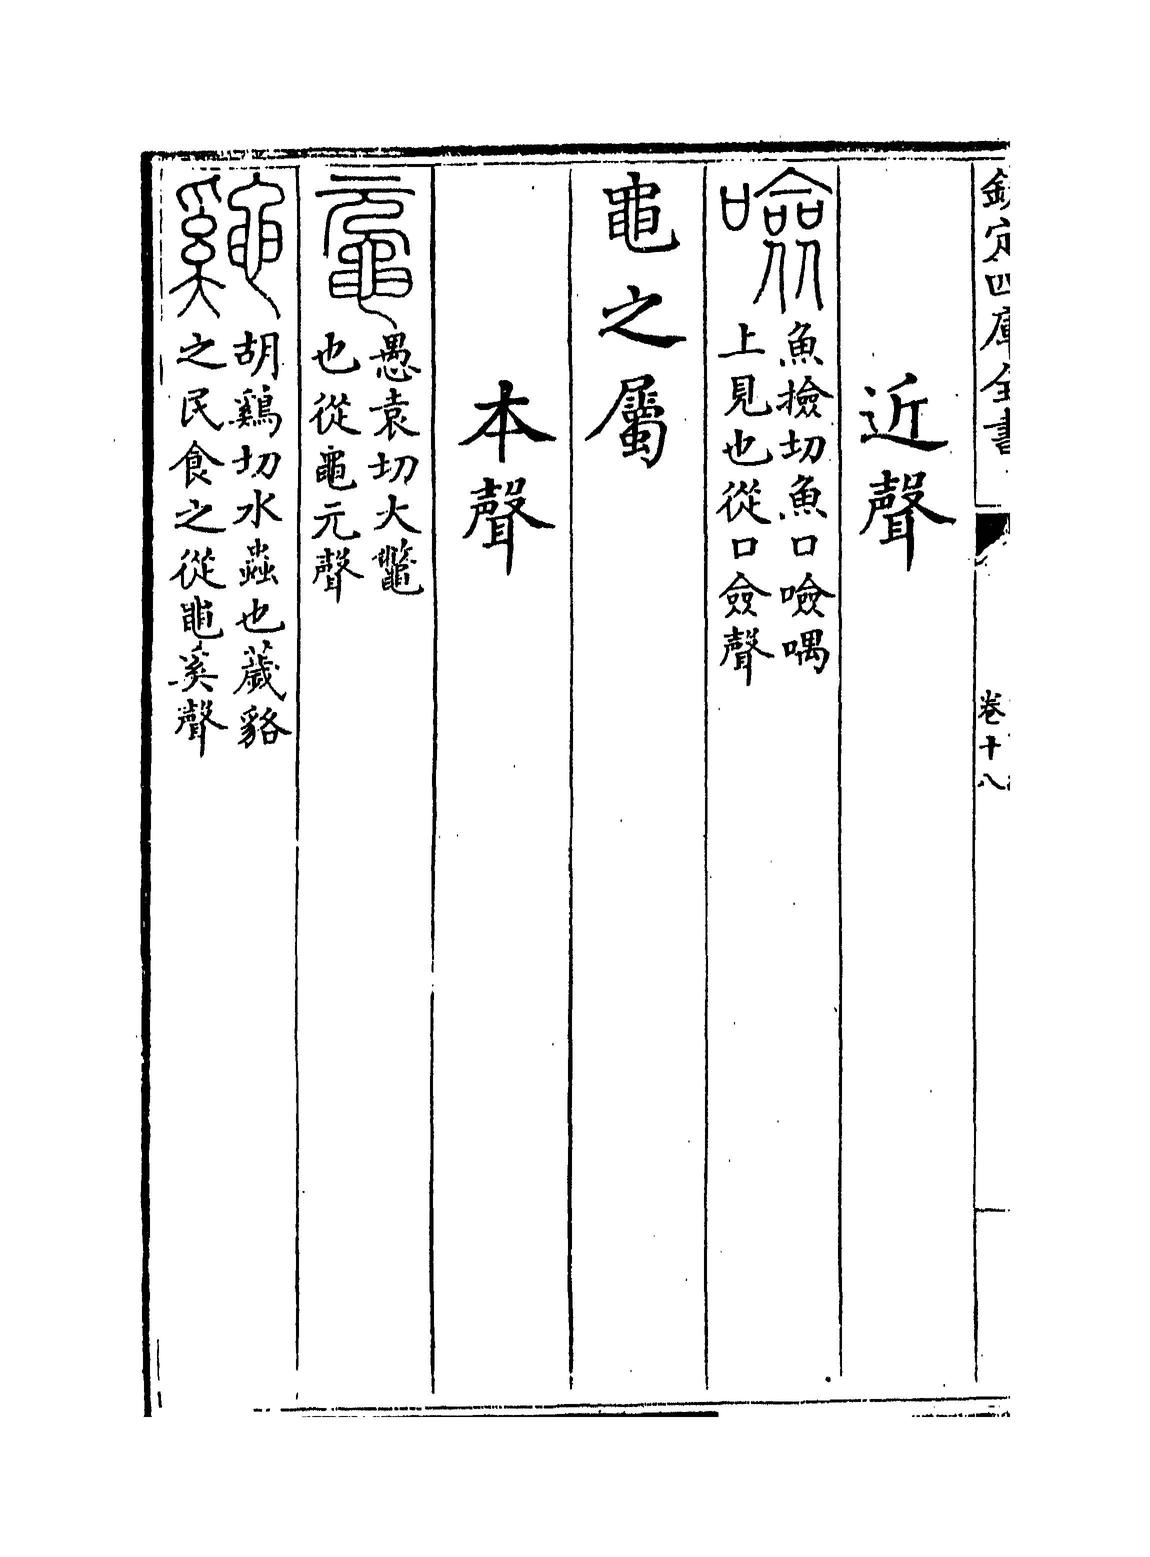 欽定四庫全書
卷十八
近聲
噞
魚撿切魚口噞喁
上見也從口僉聲
黽之屬
本聲
黿
愚袁切大鼈
也從黽元聲
鼷
胡鷄切水蟲也薉貉
之民食之從黽奚聲